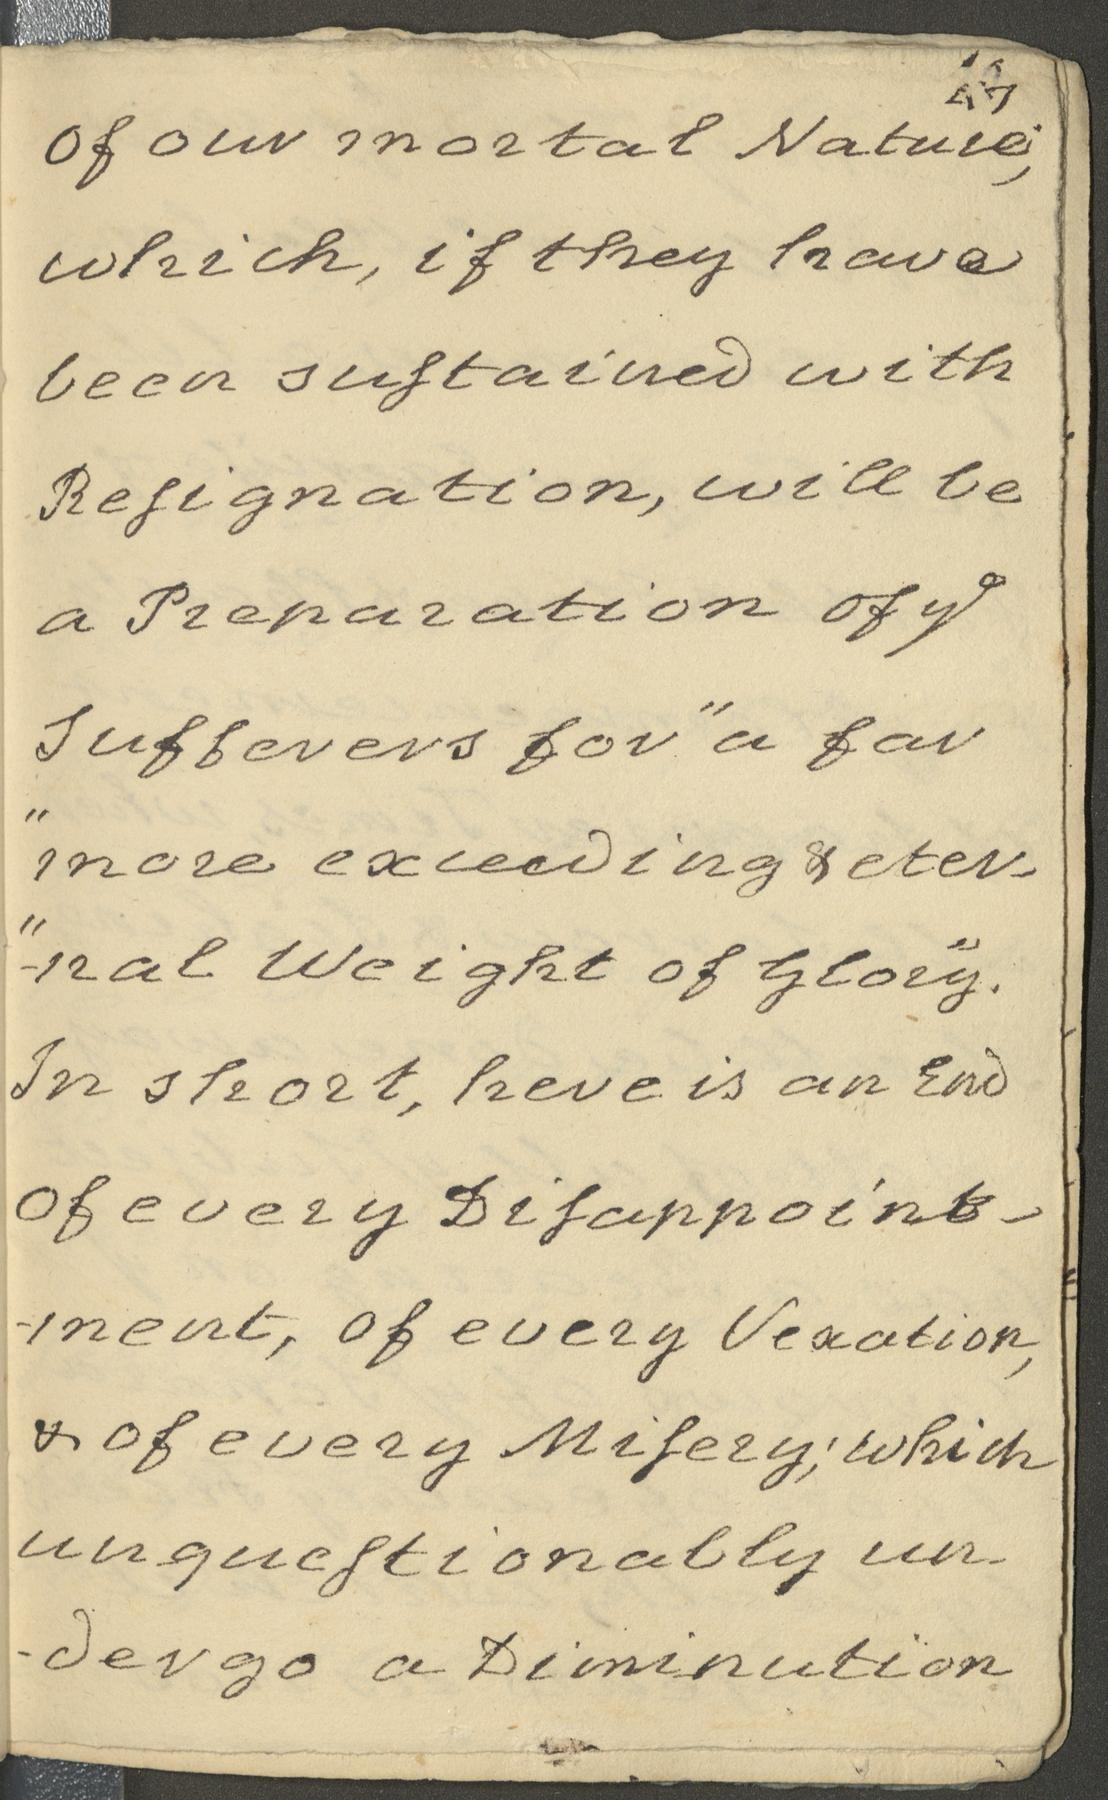 of our mortal Nature;
which, if they have
been suſtained with
Reſignation, will be
a Preparation of yᵉ
Sufferers for "a far
"more exceeding & eter-
"-nal Weight of Glory".
In short, here is an End
of every Diſappoint-
-ment, of every Vexation,
& of every Miſery; which
unqueſtionably un-
-dergo a Diminution